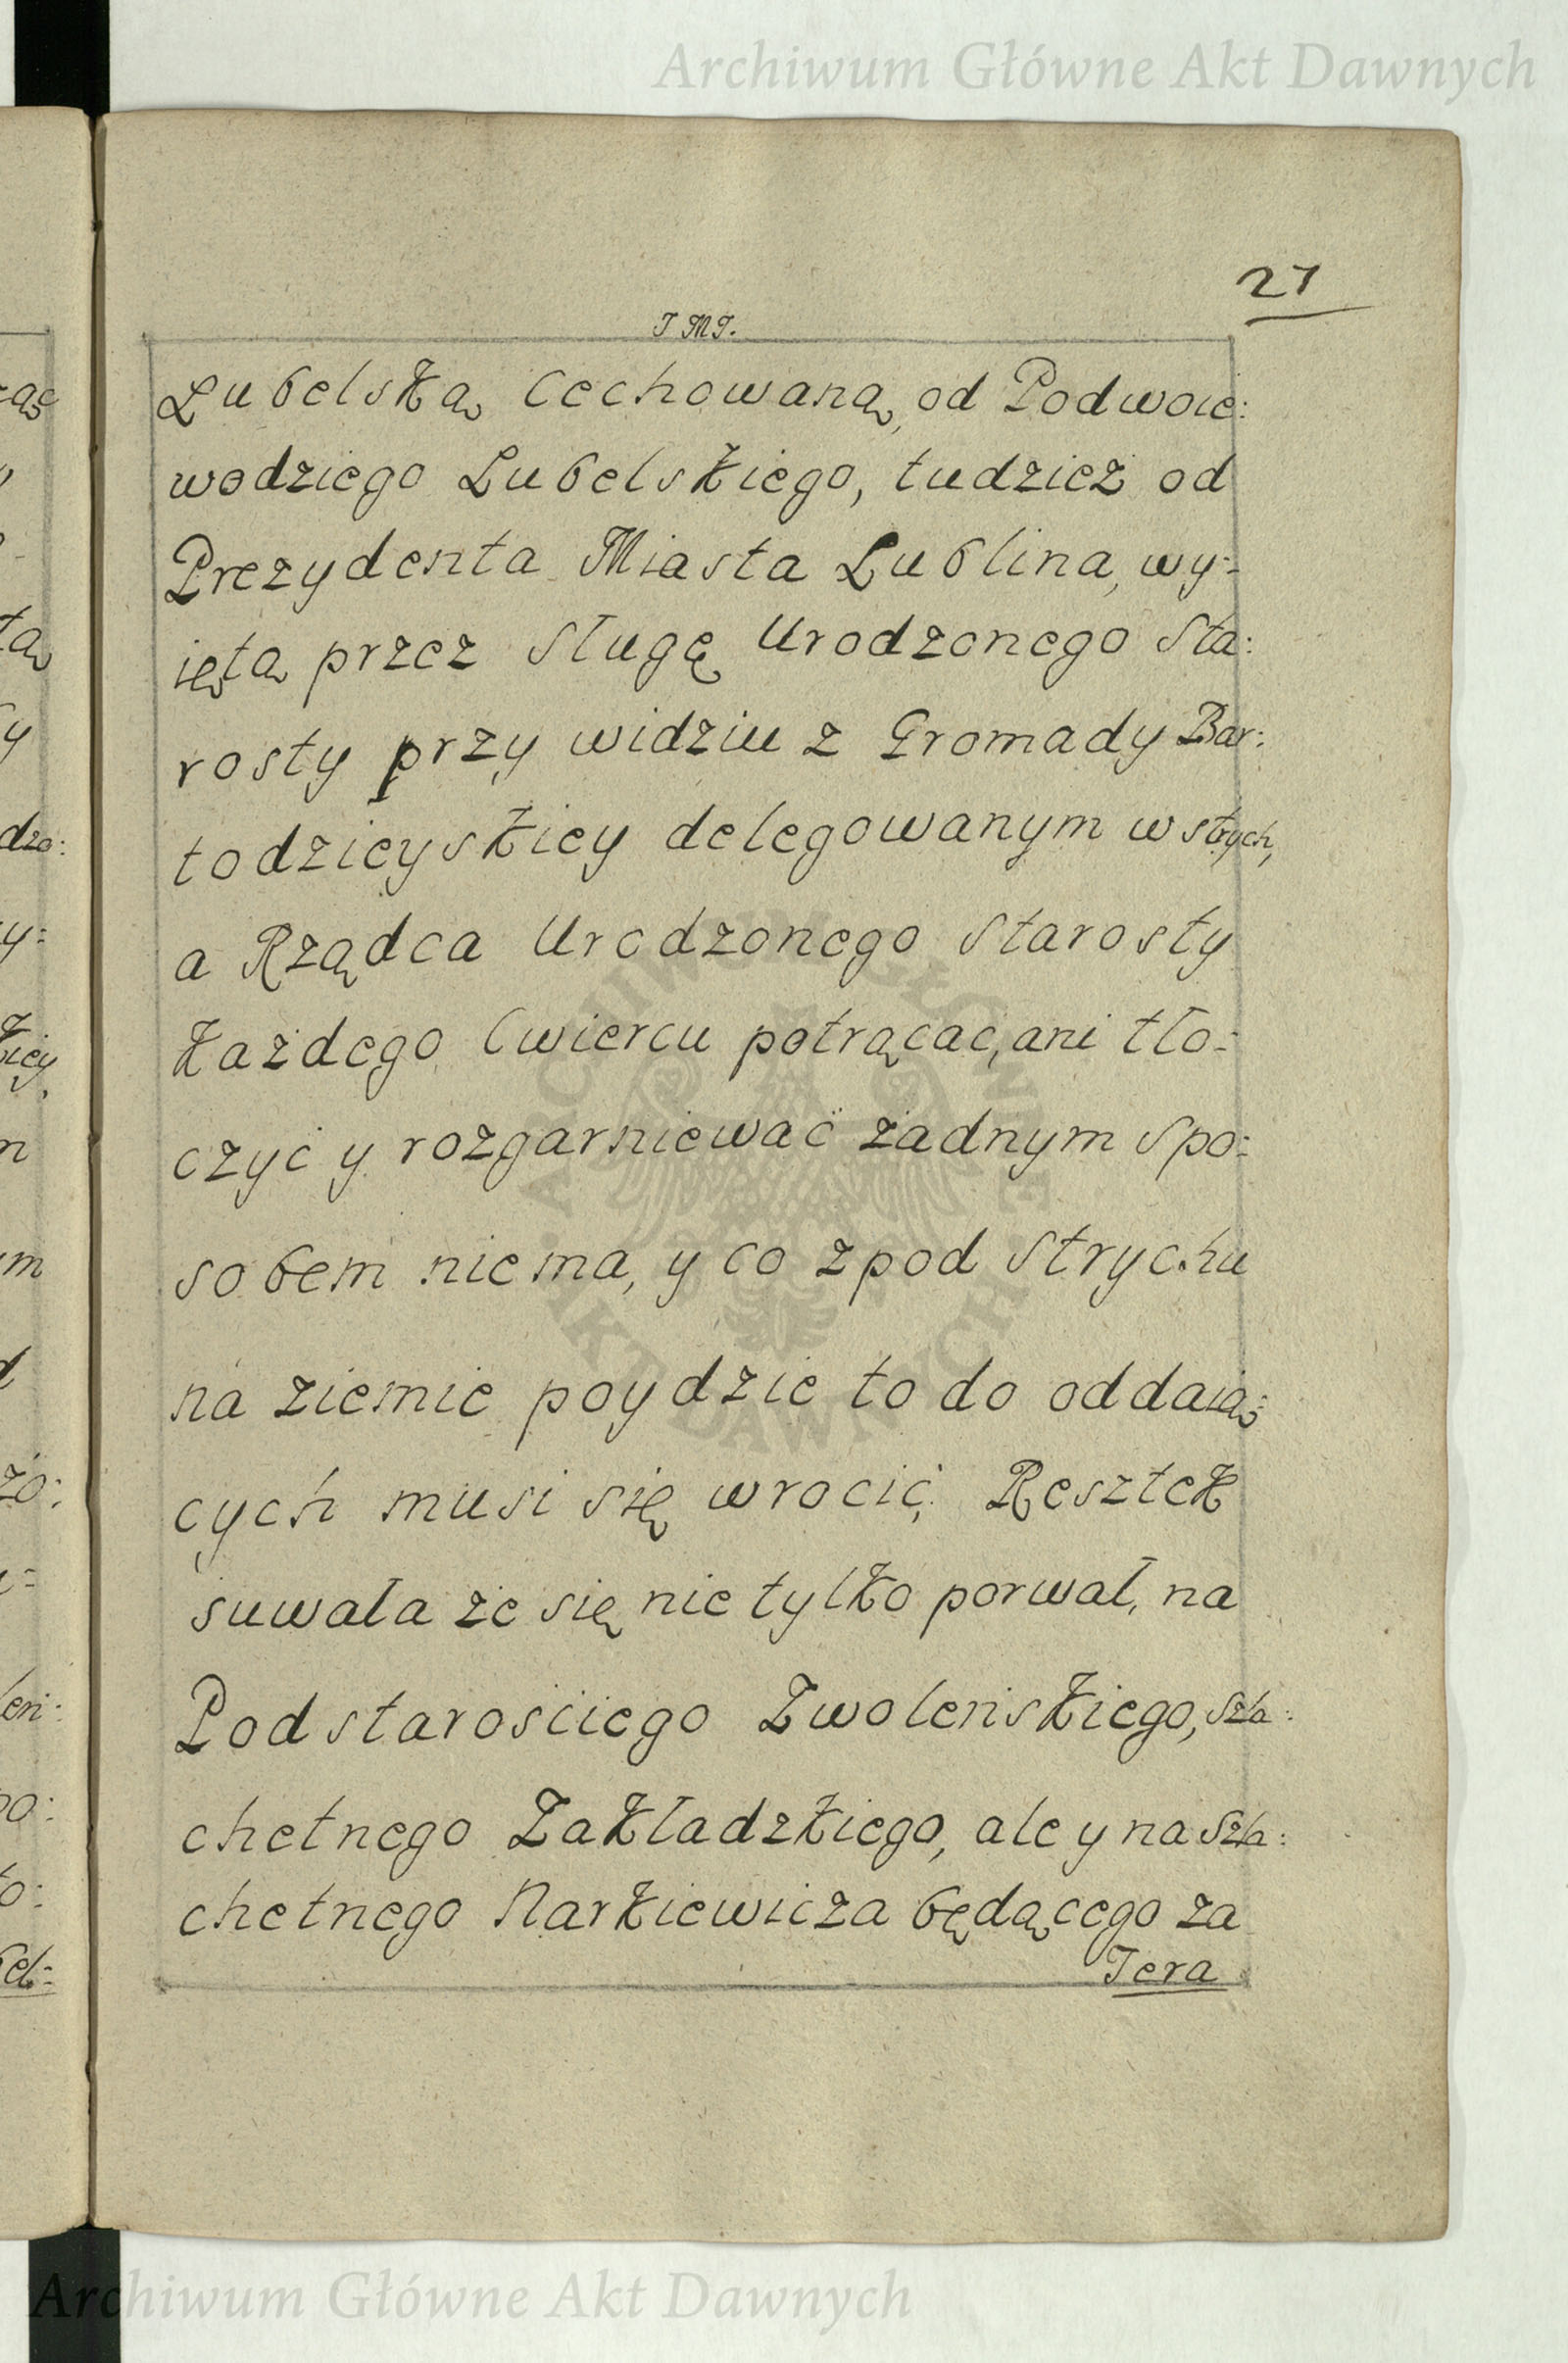 Archiwum Główne Akt Dawnych
21
J M J.
Lubelską Cechowaną, od Podwoie:
wodziego Lubelskiego, tudzież od
Prezydenta Miasta Lublina, wy:
iętą przez Sługę Urodzonego Sta:
rosty przy widziu z Gromady Bar:
todzieyskiey delegowanym w strych,
a Rządca Urodzonego Starosty
każdego Cwiercu potrącać, ani tło:
czyć y rozgarniewać żadnym spo:
sobem nie ma, y co z pod Strychu
na ziemie poydzie to do oddaią:
cych musi się wrocić. Resztek
suwała że się nie tylko porwał, na
Podstarosciego Zwoleńskiego, Szla:
chetnego Zakładzkiego, ale y na Szla:
chetnego Narkiewicza będącego za
Tera
ARCHIWUM GŁÓWNE AKT DAWNYCH
Archiwum Główne Akt Dawnych